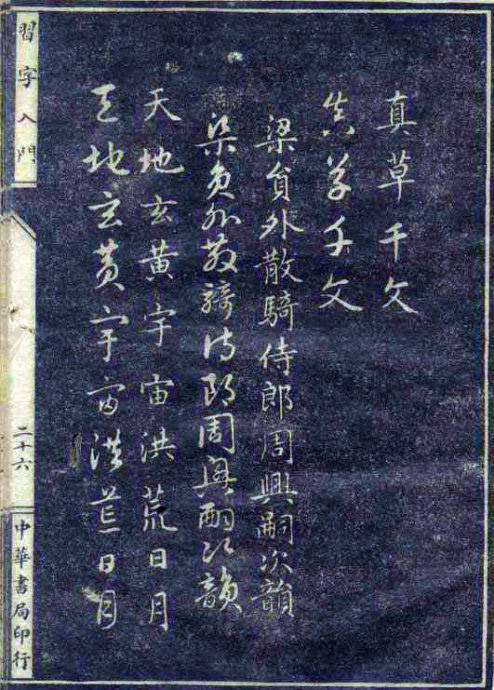 真草千文
真草千文
梁員外散騎侍郎周興嗣次韻
梁員外散騎侍郎周興嗣次韻
天地玄黃宇宙洪荒日月
天地玄黃宇宙洪荒日月
習字入門
二十六
中華書局印行